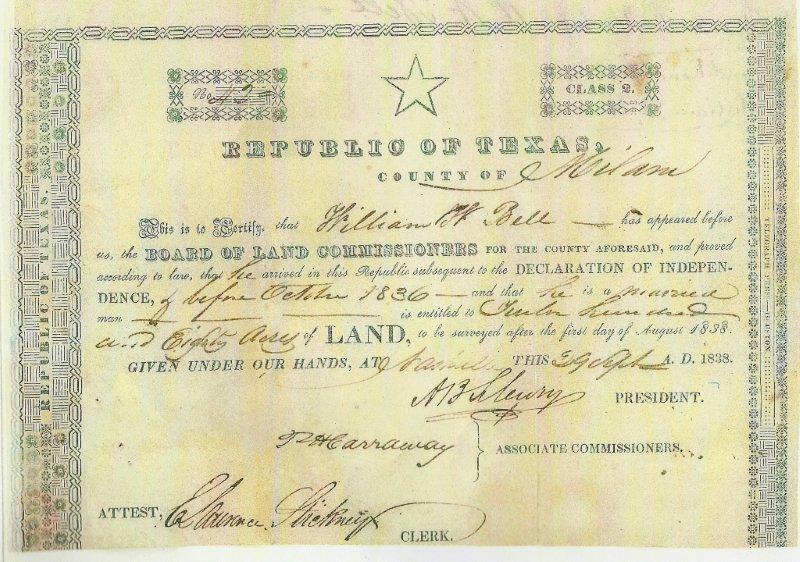 No. 42
CLASS 2.
REPUBLIC OF TEXAS,
COUNTY OF Milam
This is to Certify, that William W Bell has appeared before
us, the BOARD OF LAND COMMISSIONERS FOR THE COUNTY AFORESAID, and proved
according to law, that he arrived in this Republic subsequent to the DECLARATION OF INDEPEN-
DENCE, & before October 1836 and that he is a married
man is entitled to Twelve hundred
and Eighty Acres of LAND, to be surveyed after the first day of August 1838.
GIVEN UNDER OUR HANDS, AT THIS Sept A. D. 1838.
PRESIDENT.
Carraway
ASSOCIATE COMMISSIONERS.
ATTEST, Stickney
CLERK.
REPUBLIC OF TEXAS.
TELEGRAPH HOUSTON